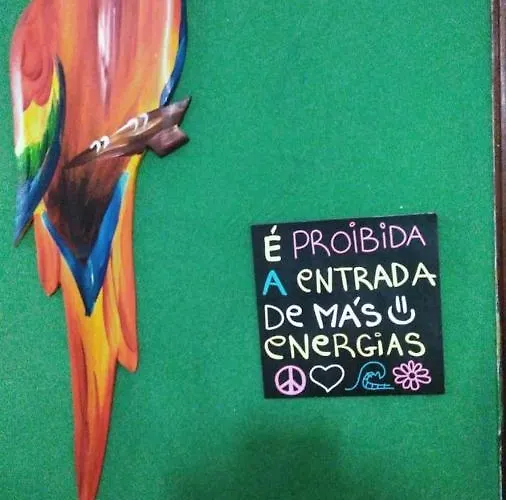 É PROIBIDA
A ENTRADA
DE MÁS
ENERGIAS